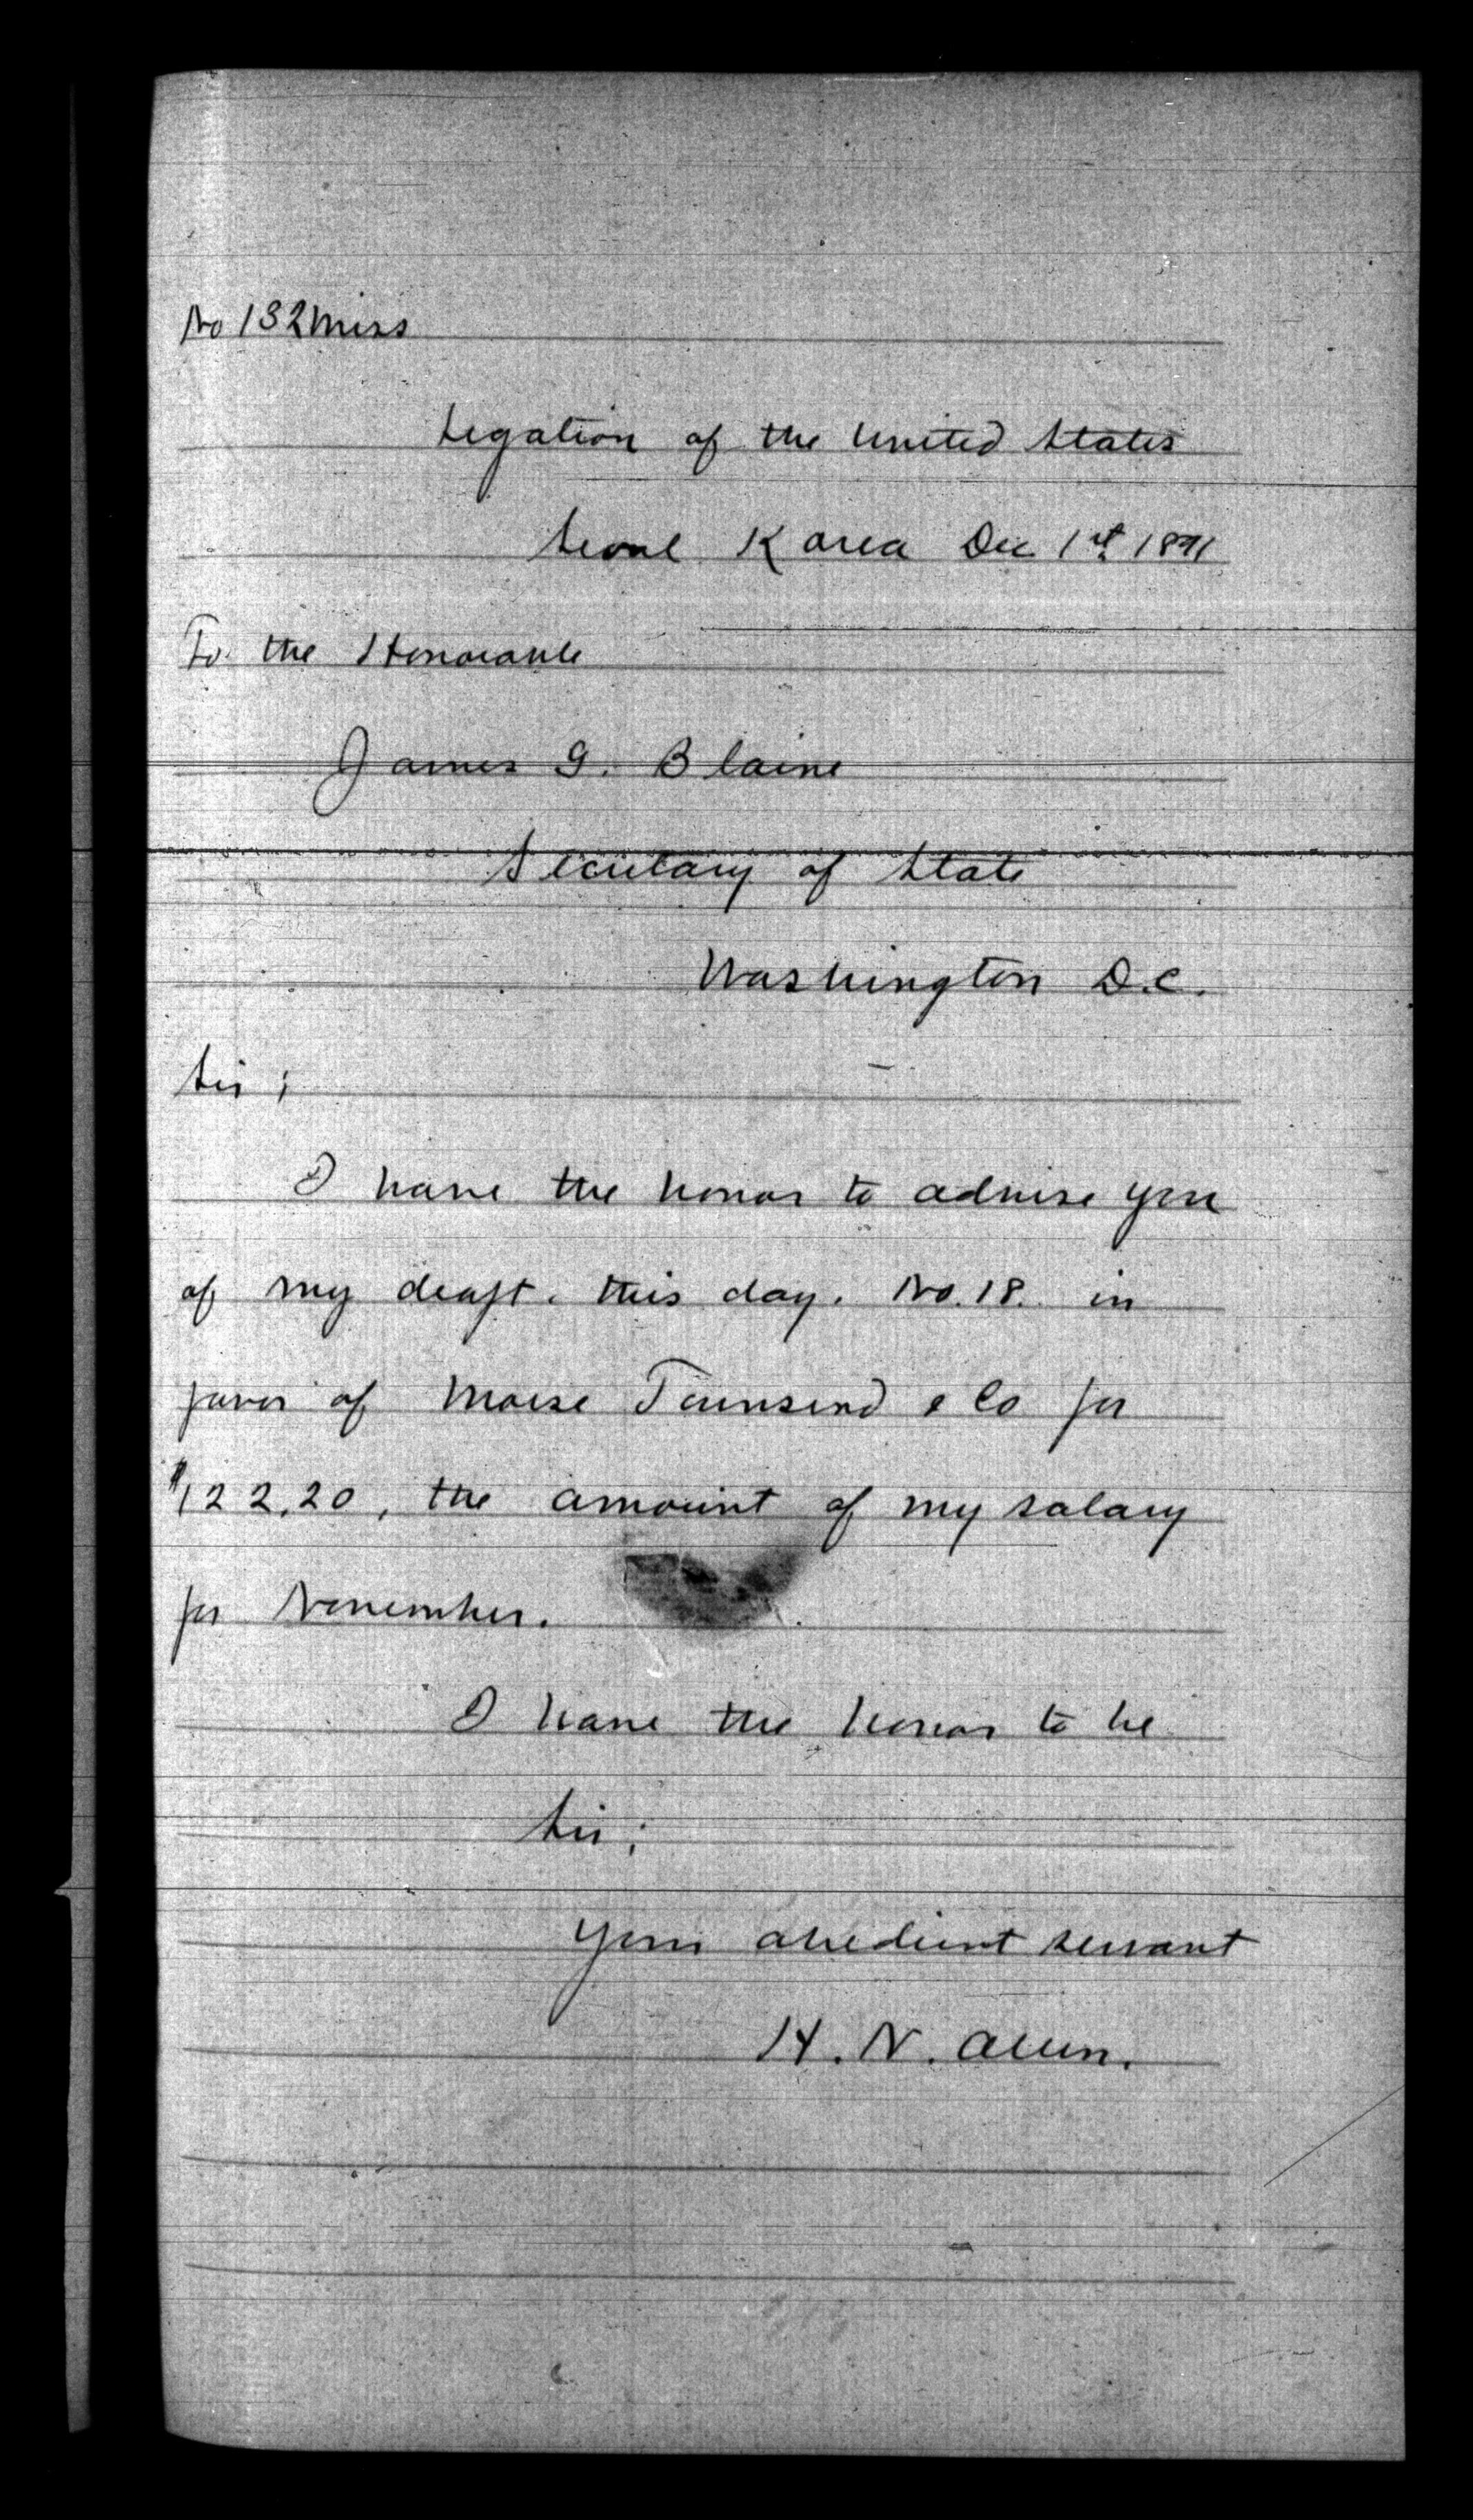 No 132 Miss
Legation of the United States
Seoul Korea Dec 1st 1891
To the Honorable
James G. Blaine
Secretary of State
Washington D.C.
Sir;
I have the honor to advise you
of my draft. this day. No. 18. in
favor of Morse Townsend & Co for
$122.20, the amount of my salary
for November.
I have the honor to be
Sir;
Your obedient servant
H. N. Allen.